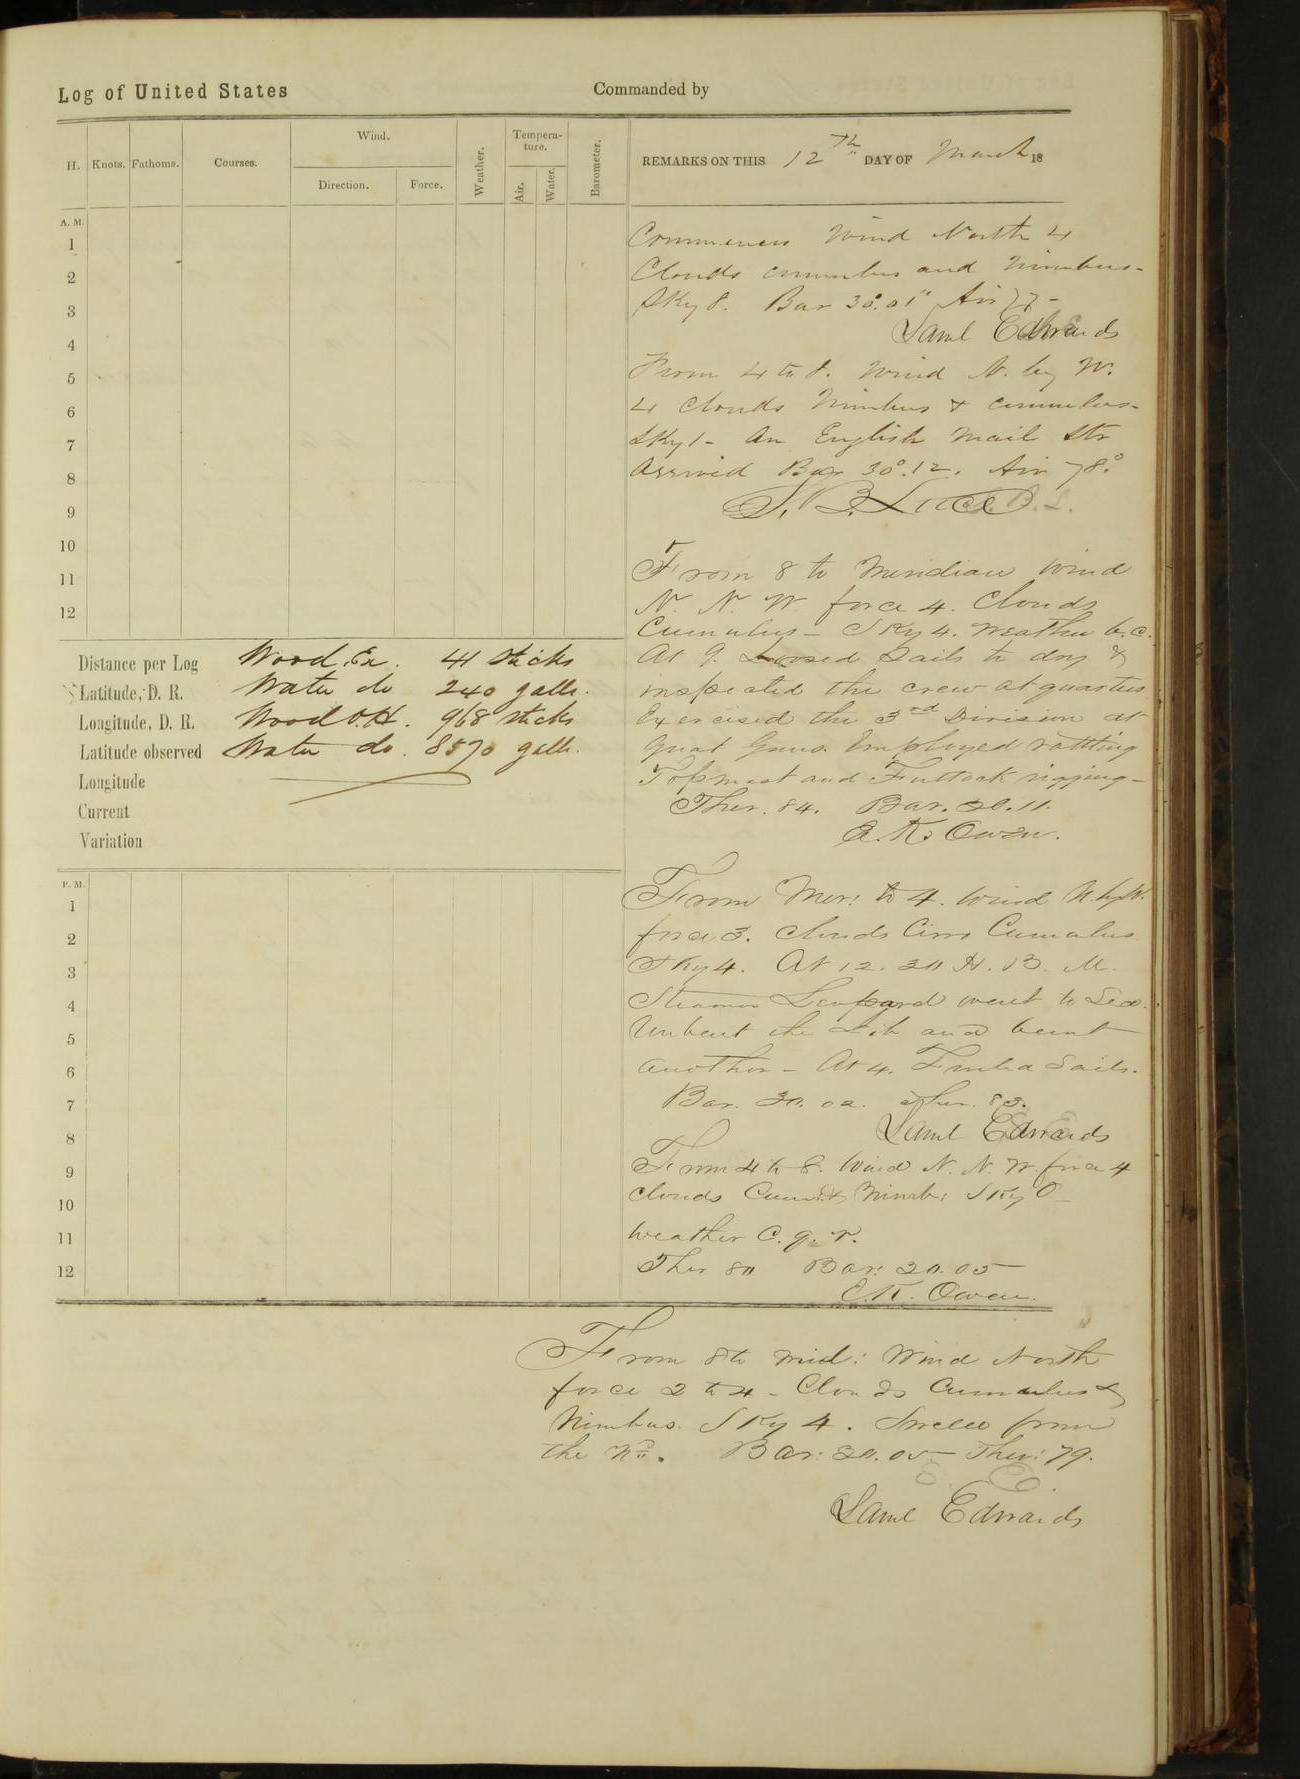 Log of United States Commanded by
H. Knots. Fathoms. Courses. Wind. Direction. Force. Weather. Tempera-ture. Air. Water. Barometer.
REMARKS ON THIS 12th DAY OF March 18
A. M.
1
2
3
4
5
6
7
8
9
10
11
12
Commences Wind North 4
Clouds cumulus and Nimbus-
Sky 8. Bar 30°.01" Air 77-
Saml Edwards
From 4 to 8. Wind N. by W.
4 Clouds Nimbus & cumulus-
Sky 1- An English Mail Str
Arrived Bar 30°.12. Air 78.°
S. B. Luce
From 8 to Meridian Wind
N. N. W. force 4. Clouds
Cumulus- Sky 4. Weather b.c.
At 9. Loosed Sails to dry &
inspected the crew at quarters
Exercised the 3rd Division at
Great Guns. Employed rattling
Topmast and Futtock rigging-
Ther. 84. Bar. 30.11.
E. K. Owen.
Distance per Log Wood Ex. 41 sticks
Latitude, D. R. Water do 240 galls.
Longitude, D. R. Wood O.H. 968 sticks
Latitude observed Water do. 8570 galls.
Longitude
Current
Variation
P. M.
1
2
3
4
5
6
7
8
9
10
11
12
From Mer: to 4. Wind N by W.
force 3. Clouds Cirro Cumulus
Sky 4. At 12.30 H. B. M.
Steamer Leopard went to Sea.
Unbent the Jib and bent
another- At 4. Furled Sails.
Bar. 30.02. Ther. 83.
Saml Edwards
From 4 to 8. Wind N. N. W. force 4
Clouds Cum: & Nimb: Sky 0-
Weather C. q. r.
Ther 80 Bar: 30.05
E. K. Owen.
From 8 to Mid: Wind North
force 2 to 4- Clouds Cumulus &
Nimbus. Sky 4. Swell from
the Nd. Bar: 30.05- Ther: 79.
Saml Edwards